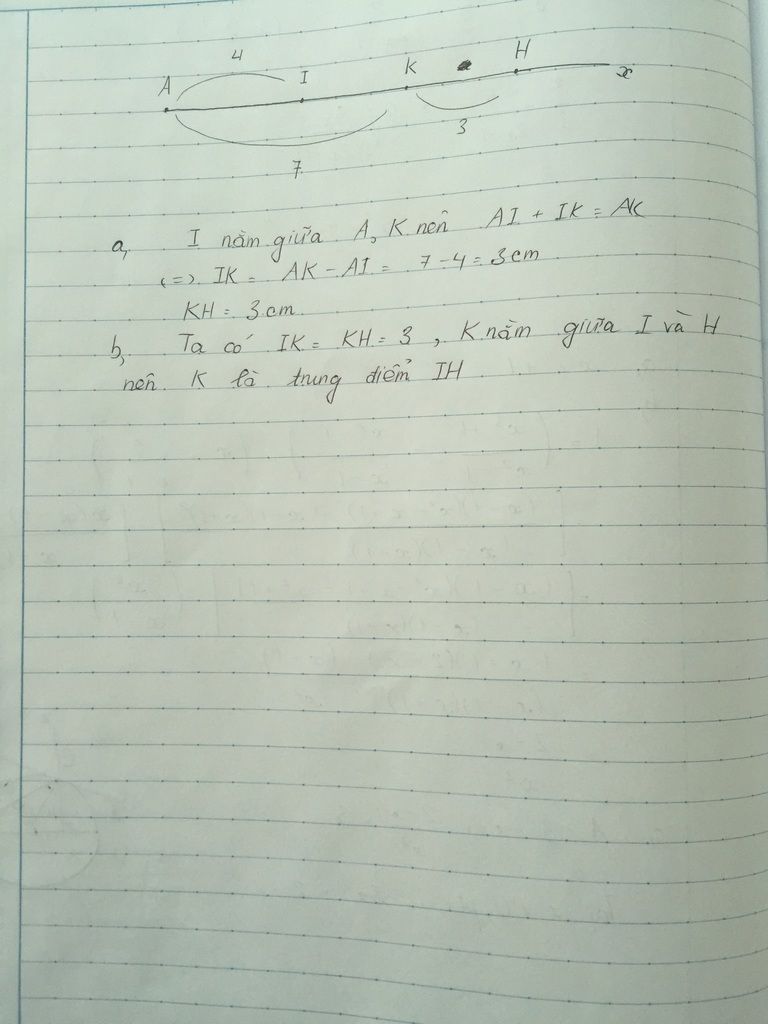 4
A I K H x
7
3
a, I nằm giữa A, K nên AI + IK = AK
(=) IK = AK - AI = 7 - 4 = 3 cm
KH = 3 cm
b, Ta có IK = KH = 3, K nằm giữa I và H
nên K là trung điểm IH